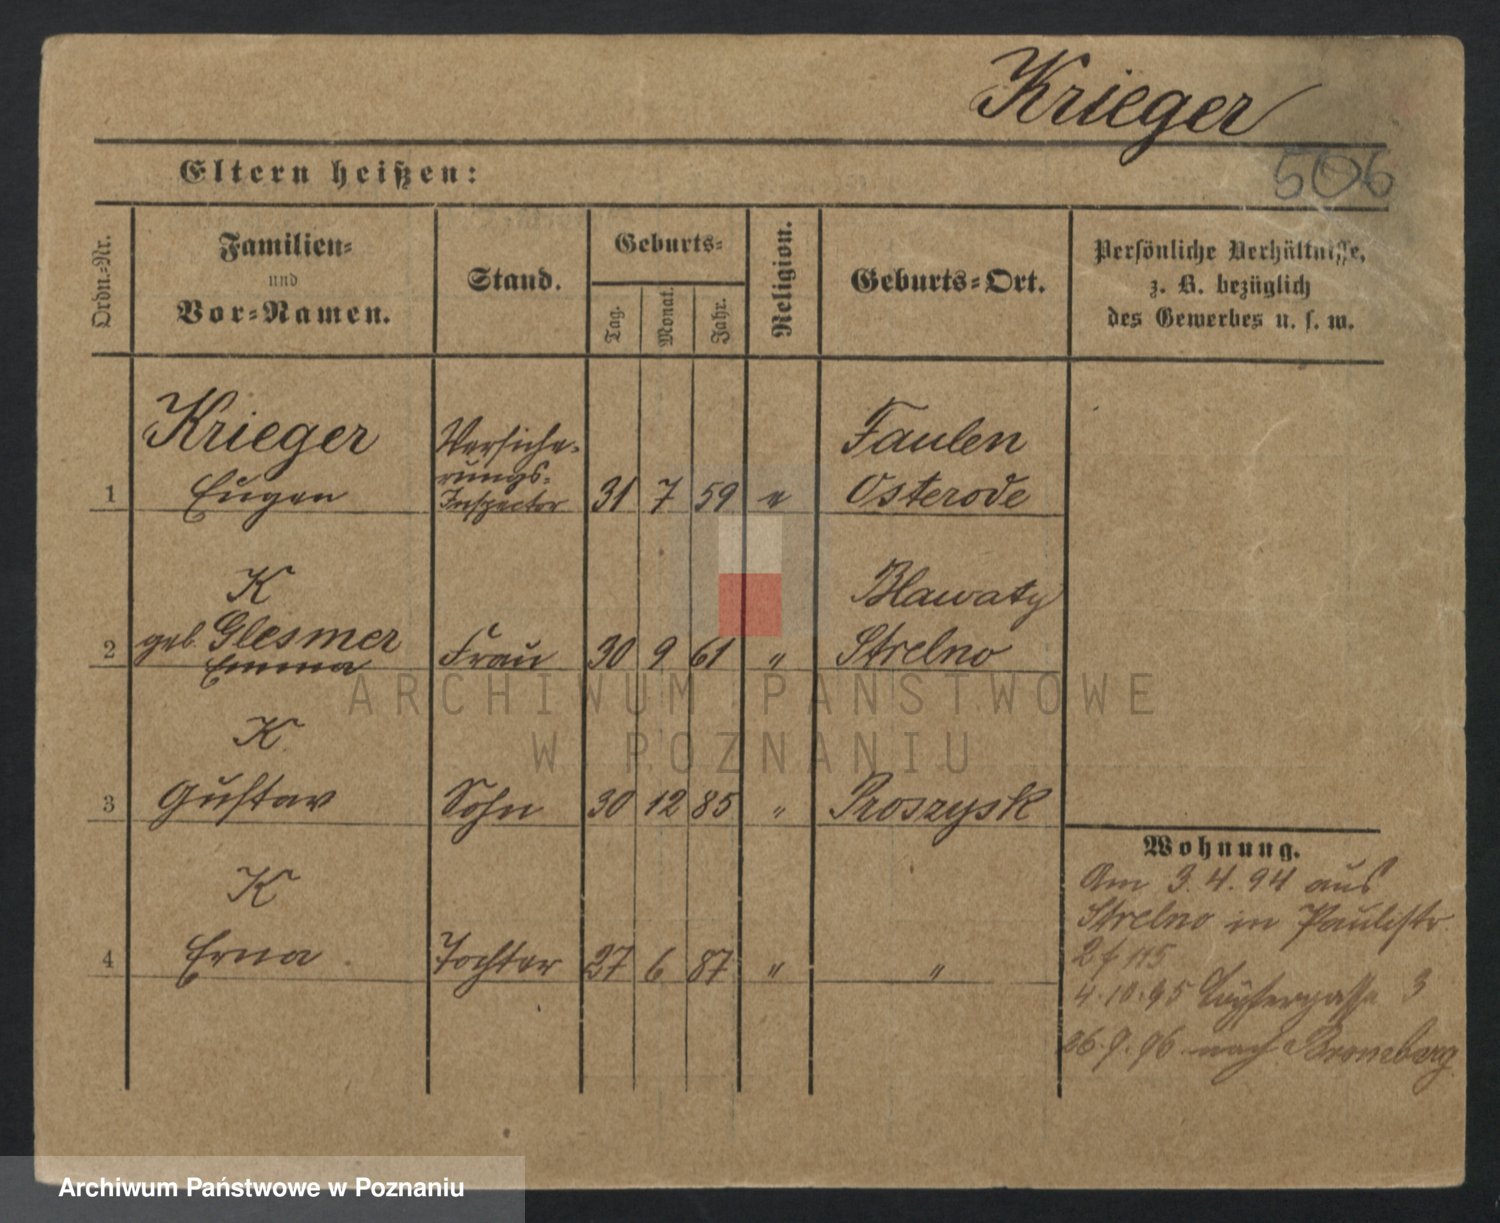 Krieger
506
Eltern heißen:
Ordn.-Nr.
Familien-
und
Vor-Namen.
Stand.
Geburts-
Tag.
Monat.
Jahr.
Religion.
Geburts-Ort.
Persönliche Verhältnisse,
z. B. bezüglich
des Gewerbes u. s. w.
Krieger
Versiche-
Faulen
rungs-
1 Eugen Inspector 31 7 59 Osterode
K
Blawaty
geb. Glesmer
2 Emma Frau 30 9 61 " Strelno
K
3 Gustav Sohn 30 12 85 " Proszysk
K
4 Erna Tochter 27 6 87 " "
Wohnung.
Am 3.4.94 aus
Strelno in Paulistr.
4.10.95 3
26.9.96 nach Bromberg
ARCHIWUM PAŃSTWOWE
W POZNANIU
Archiwum Państwowe w Poznaniu